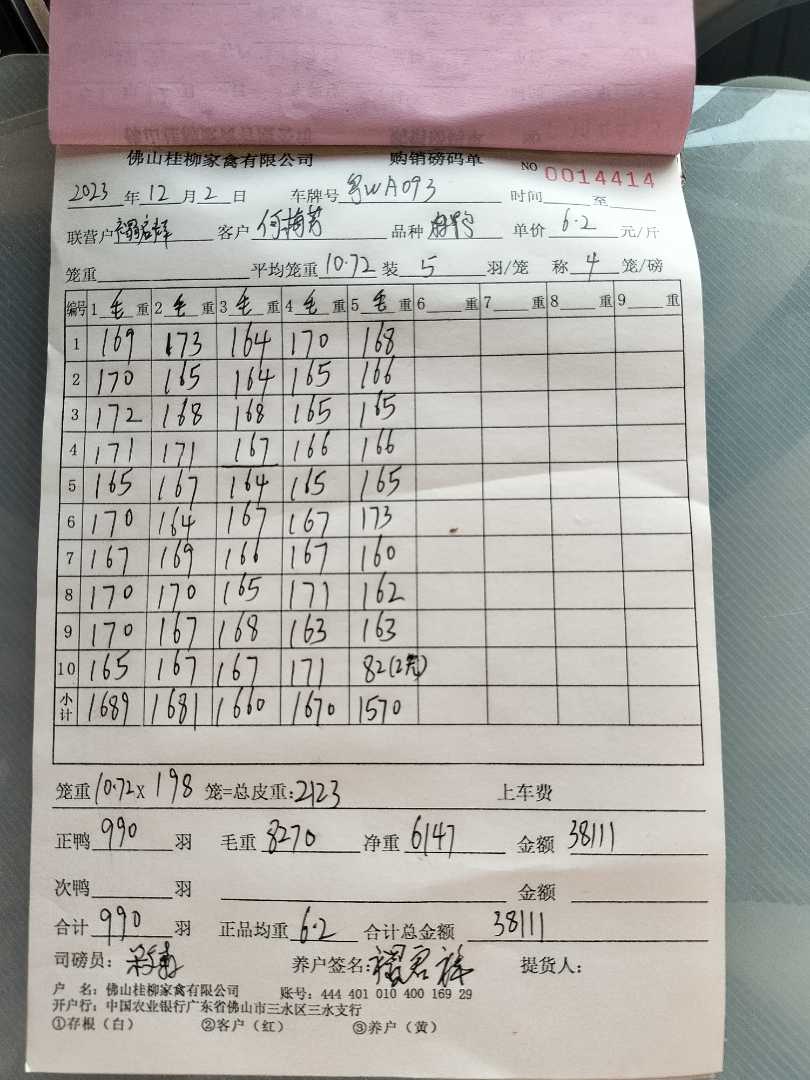 佛山桂柳家禽有限公司 购销磅码单 NO 0014414
2023 年 12 月 2 日 车牌号 粤WA093 时间 至
联营户 客户 何梅芳 品种 单价 6.2 元/斤
笼重 平均笼重 10.72 装 5 羽/笼 称 4 笼/磅
编号 1 毛 重 2 毛 重 3 毛 重 4 毛 重 5 毛 重 6 重 7 重 8 重 9 重
1 169 173 164 170 168
2 170 165 164 165 166
3 172 168 168 165 165
4 171 171 167 166 166
5 165 167 164 165 165
6 170 164 167 167 173
7 167 169 166 167 160
8 170 170 165 171 162
9 170 167 168 163 163
10 165 167 167 171 82(2笼)
小计 1689 1681 1660 1670 1570
笼重 10.72 X 198 笼=总皮重: 2123 上车费
正鸭 990 羽 毛重 8270 净重 6147 金额 38111
次鸭 羽 金额
合计 990 羽 正品均重 6.2 合计总金额 38111
司磅员: 养户签名: 提货人:
户 名: 佛山桂柳家禽有限公司 账号: 444 401 010 400 169 29
开户行: 中国农业银行广东省佛山市三水区三水支行
①存根（白） ②客户（红） ③养户（黄）